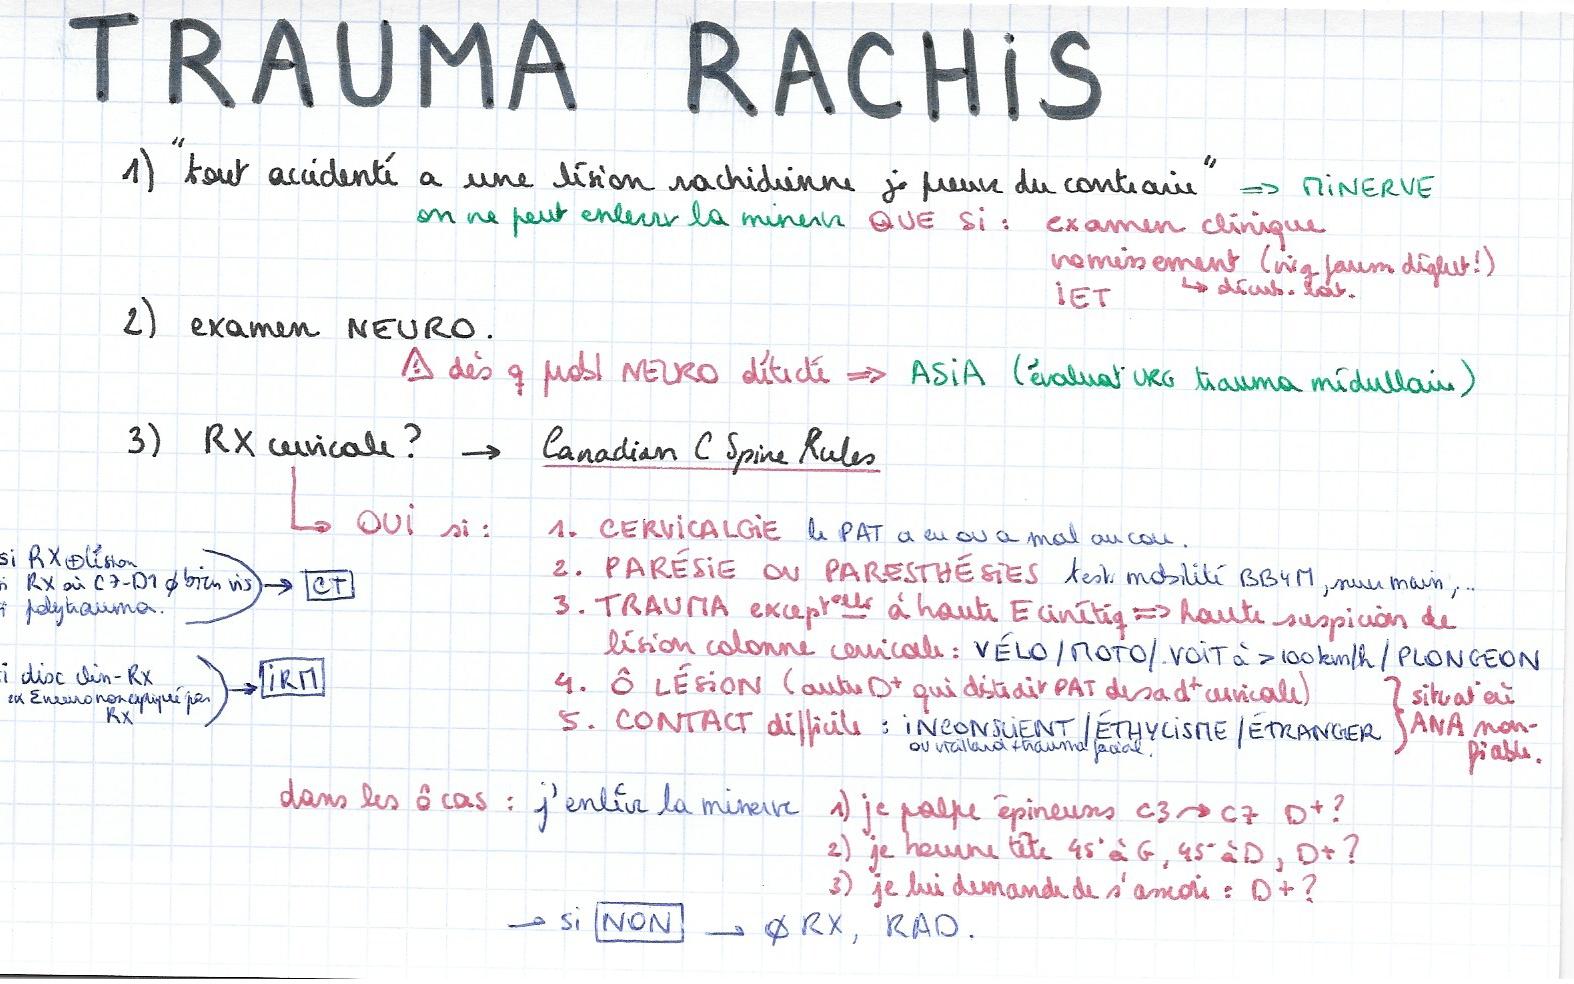 TRAUMA RACHIS
1) "tout accidenté a une lésion rachidienne js preuve du contraire" => MINERVE
on ne peut enlever la minerve QUE Si : examen clinique
vomissement (risq fausse déglut!)
↳ décub. lat.
iET
2) examen NEURO.
⚠ dès q probl NEURO détecté => ASiA (évaluat° URG trauma médullaire)
3) RX cervicale ? → Canadian C Spine Rules
↳ OUi si :
1. CERViCALGiE le PAT a eu ou a mal au cou.
2. PARÉSiE OU PARESTHÉSiES test mobilité BB4M, main,..
3. TRAUMA except elle à haute E cinétiq => haute suspicion de
lésion colonne cervicale : VÉLO / MOTO / VOiT à > 100 km/h / PLONGEON
4. Ô LÉSiON (autre D+ qui détedir PAT de sa d+ cervicale)
5. CONTACT difficile : iNCONSCiENT / ÉTHYLiSME / ÉTRANGER
ou vieillard + trauma facial.
} situat° où
ANA non-
fiable.
si RX ⊕ lésion
i RX où C7-D1 ∅ bien vis
polytrauma.
→ CT
i disc clin-Rx
ex Σ neuro non expliqué par
RX
→ iRM
dans les ô cas : j'enlève la minerve 1) je palpe épineuses C3 → C7 D+ ?
2) je tourne tête 45° à G, 45° à D, D+ ?
3) je lui demande de s'asseoir : D+ ?
→ si NON → ∅ RX, RAD.